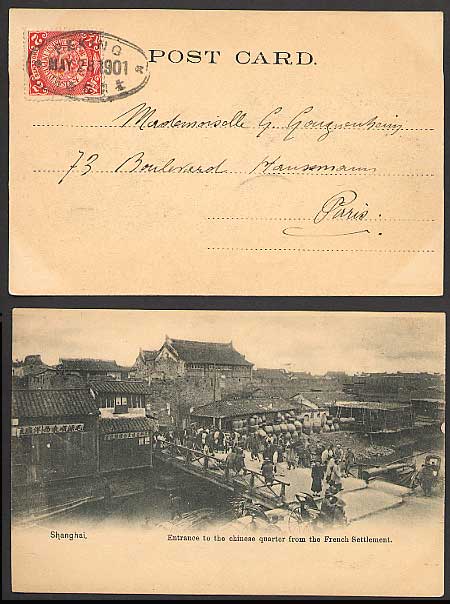 PEKING
MAY 28 1901
POST CARD.
Mademoiselle G. Gougenheim
73 Boulevard Haussmann
Paris.
Shanghai,
Entrance to the chinese quarter from the French Settlement.